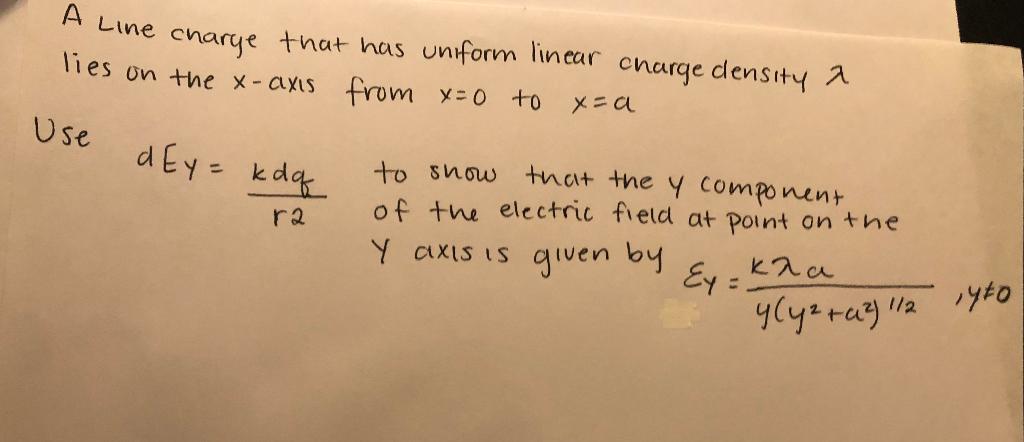 A Line charge that has uniform linear charge density λ
lies on the x-axis from x=0 to x=a
Use
dEy = kdq / r2 to show that the y component
of the electric field at point on the
Y axis is given by Ey = kλa / y(y²+a²)^1/2 , y≠0